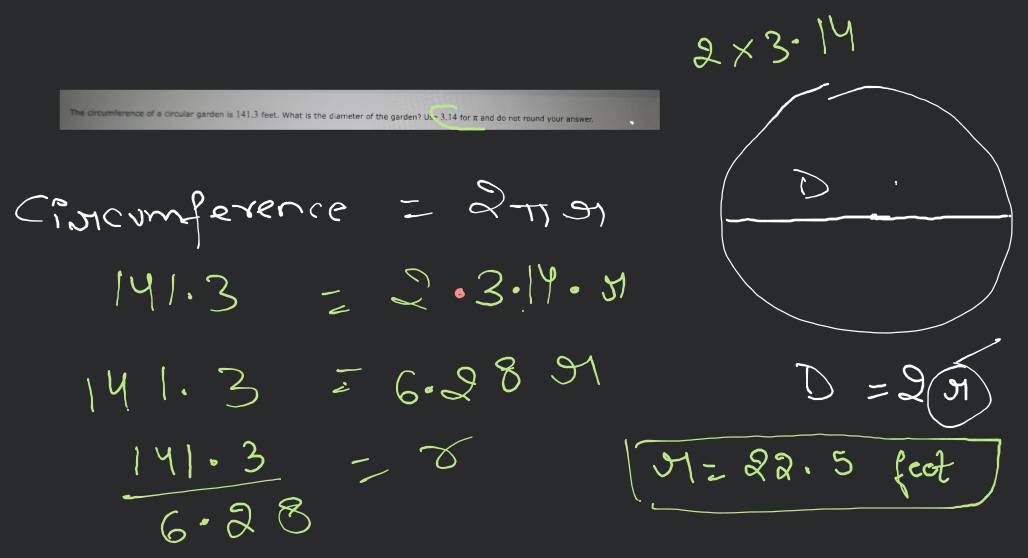 2 × 3.14
The circumference of a circular garden is 141.3 feet. What is the diameter of the garden? Use 3.14 for π and do not round your answer.
D
Circumference = 2πr
141.3 = 2 · 3.14 · r
141.3 = 6.28 r
D = 2r
141.3 / 6.28 = r
r = 22.5 feet